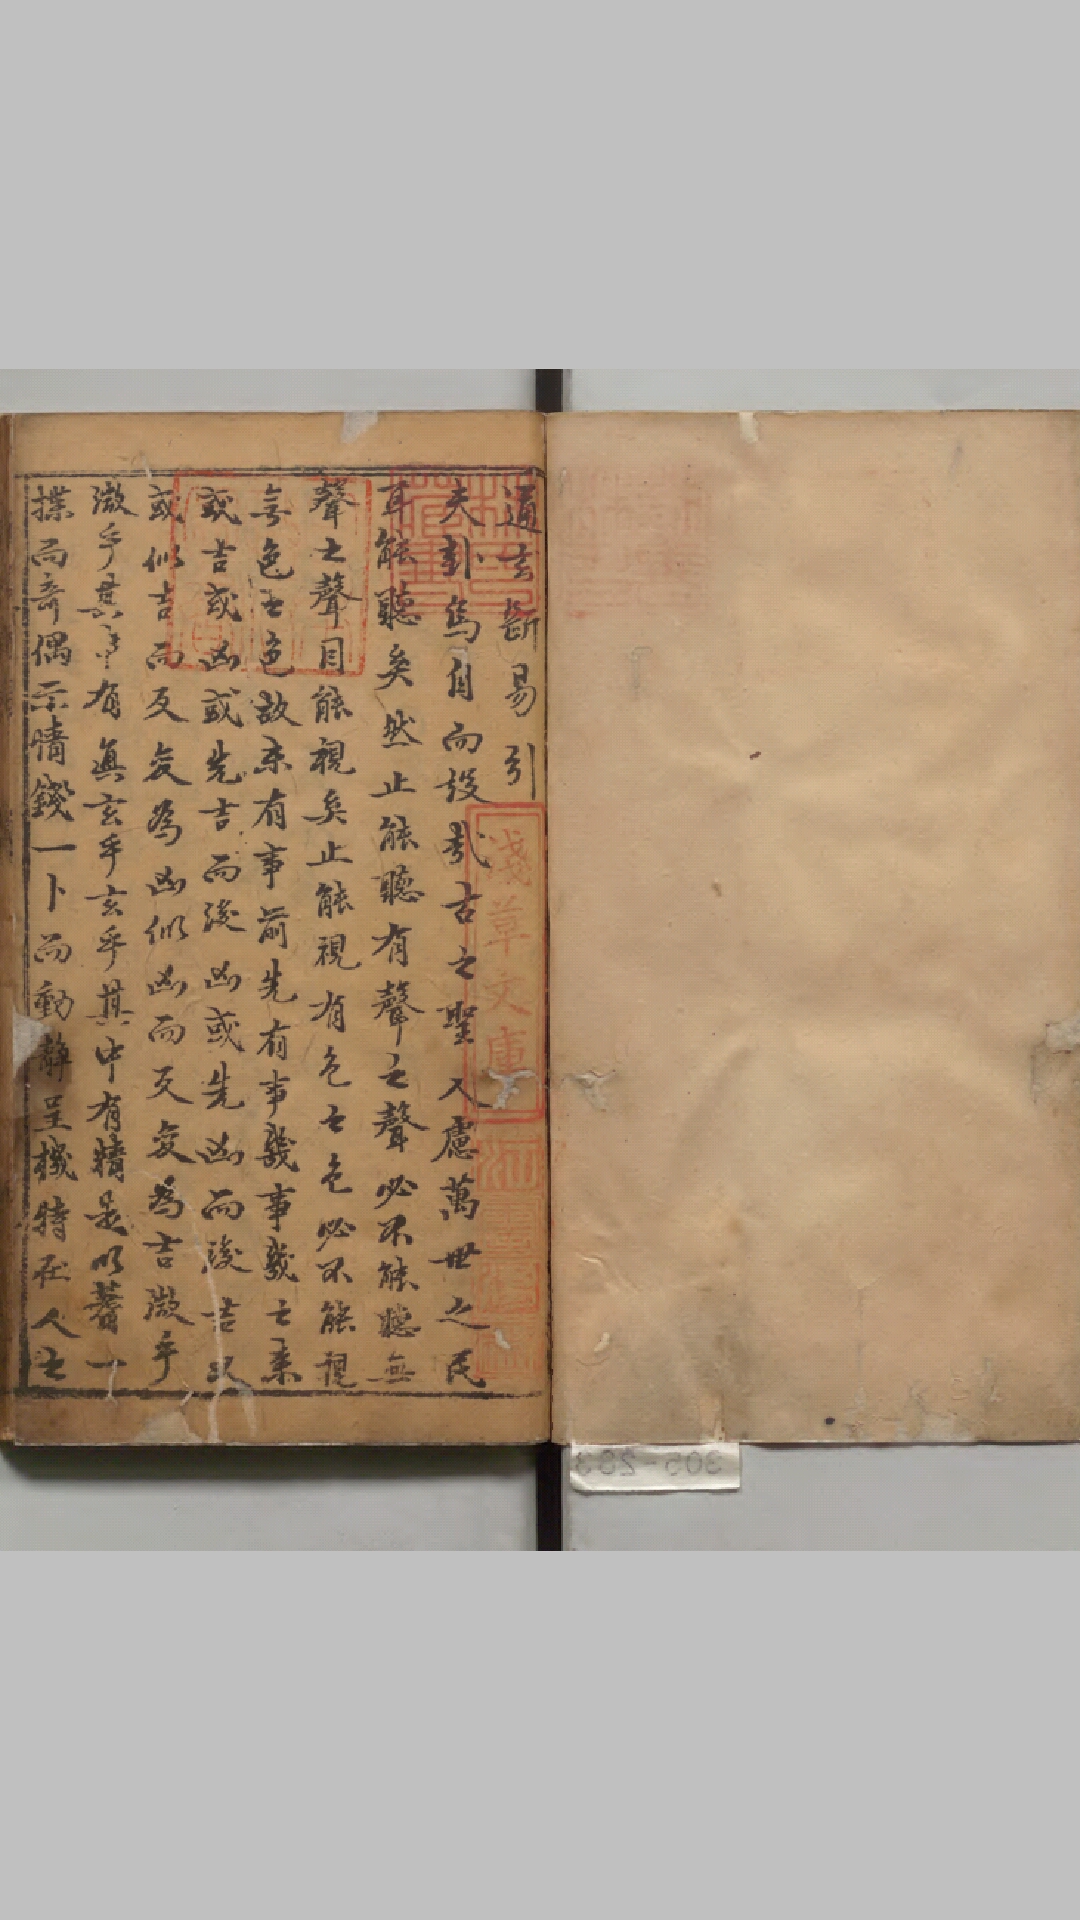 通玄斷易引
夫卦烏自而設哉古之聖人慮萬世之民
耳能聽矣然止能聽有聲之聲必不能聽無
聲之聲目能視矣止能視有色之色必不能視
無色之色故未有事前先有事幾事幾之來
或吉或凶或先吉而後凶或先凶而後吉以
或似吉而反変為凶似凶而反変為吉微乎
微乎其中有真玄乎玄乎其中有精是以蓍一
揲而奇偶示情錢一卜而動靜呈機特在人之
淺草文庫
305-283